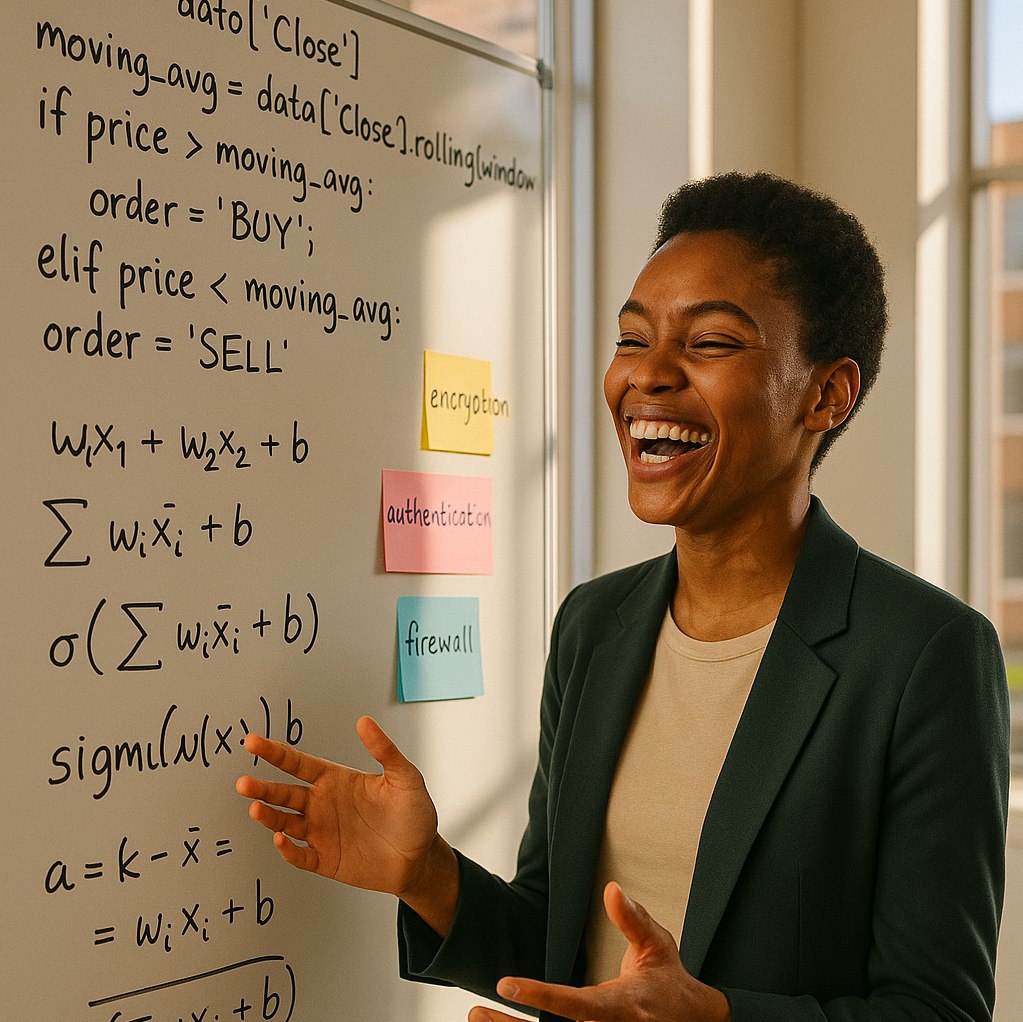 dato['Close']
moving_avg = data['Close'].rolling(window
if price > moving_avg:
order = 'BUY';
elif price < moving_avg:
order = 'SELL'
w₁x₁ + w₂x₂ + b
∑ wᵢx̄ᵢ + b
σ(∑ wᵢx̄ᵢ + b)
b
a = k - x̄ =
= wᵢxᵢ + b
+ b)
encryption
authentication
firewall